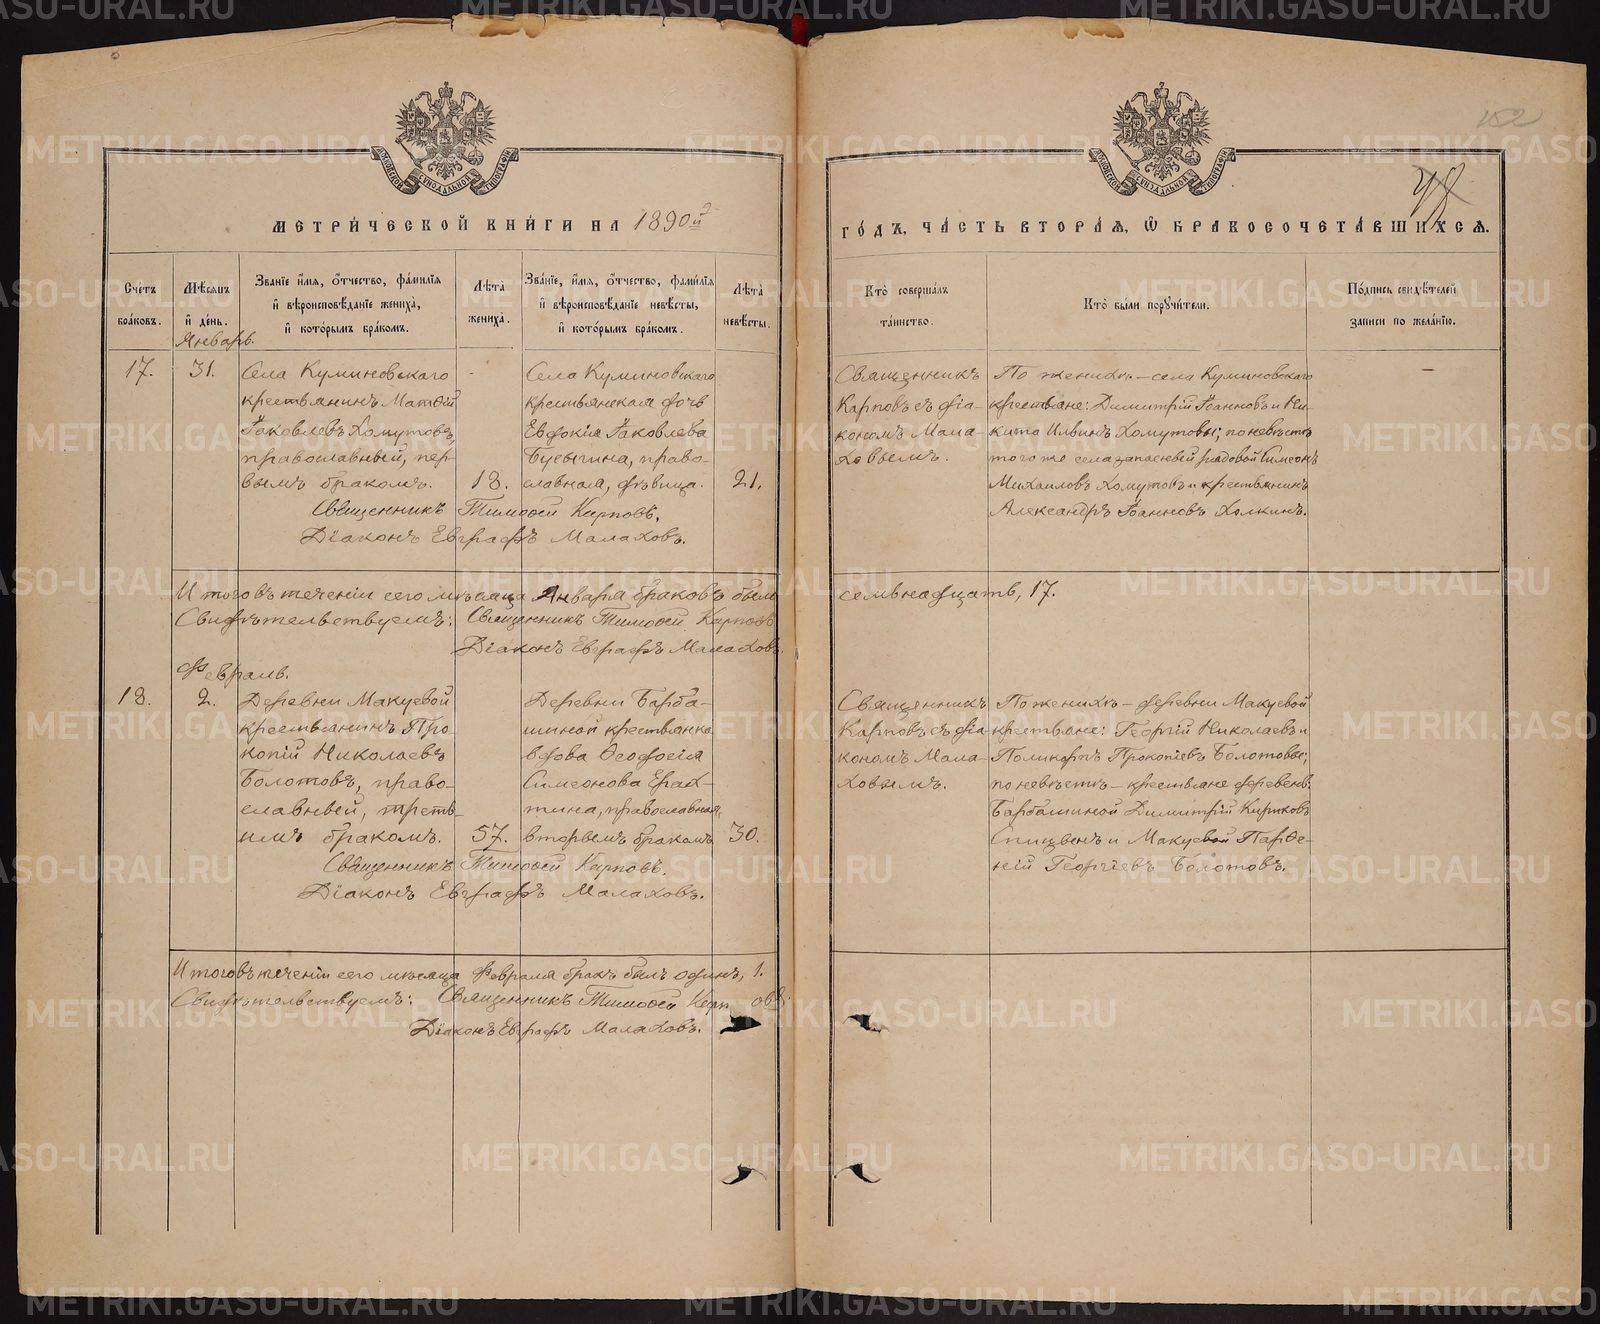 152
МЕТРИЧЕСКОЙ КНИГИ НА 1890й
ГОДЪ, ЧАСТЬ ВТОРАЯ, Ѡ БРАКОСОЧЕТАВШИХСЯ.
Счетъ браковъ.
Мѣсяцъ и день.
Званіе имя, отчество, фамилія и вѣроисповѣданіе жениха, и которымъ бракомъ.
Лѣта жениха.
Званіе, имя, отчество, фамилія и вѣроисповѣданіе невѣсты, и которымъ бракомъ.
Лѣта невѣсты.
Кто совершалъ таинство.
Кто были поручители.
Подпись свидѣтелей записи по желанію.
Январь.
17.
31.
Села Куминовскаго
крестьянинъ Матѳій
Іаковлевъ Хомутовъ,
православный, пер-
вымъ бракомъ.
18.
Села Куминовскаго
крестьянская дочь
Евдокія Іаковлева
Бусыгина, право-
славная, дѣвица.
21.
Священникъ Тимоѳей Карповъ.
Діаконъ Евграфъ Малаховъ.
Священникъ
Карповъ съ діа-
кономъ Мала-
ховымъ.
По женихѣ – села Куминовскаго
крестьяне: Димитрій Іоанновъ и Ни-
кита Ильинъ Хомутовы; по невѣстѣ
того же села запасный рядовой Симеонъ
Михаиловъ Хомутовъ и крестьянинъ
Александръ Іоанновъ Холкинъ.
Итого въ теченіи сего мѣсяца Января браковъ было
семьнадцать, 17.
Свидѣтельствуемъ: Священникъ Тимоѳей Карповъ
Діаконъ Евграфъ Малаховъ.
Февраль.
18.
2.
Деревни Макуевой
крестьянинъ Про-
копій Николаевъ
Болотовъ, право-
славный, треть-
имъ бракомъ.
57.
Деревни Барба-
шиной крестьянка
вдова Ѳеодосія
Симеонова
православная,
вторымъ бракомъ
30.
Священникъ Тимоѳей Карповъ.
Діаконъ Евграфъ Малаховъ.
Священникъ
Карповъ съ діа-
кономъ Мала-
ховымъ.
По женихѣ – деревни Макуевой
крестьяне: Георгій Николаевъ и
Поликарпъ Прокопіевъ Болотовы;
по невѣстѣ – крестьяне деревень:
Барбашиной Димитрій
и Макуевой Парѳе-
ній Георгіевъ Болотовъ.
Итого въ теченіи сего мѣсяца Февраля бракъ былъ одинъ, 1.
Свидѣтельствуемъ: Священникъ Тимоѳей Карповъ.
Діаконъ Евграфъ Малаховъ.
METRIKI.GASO-URAL.RU